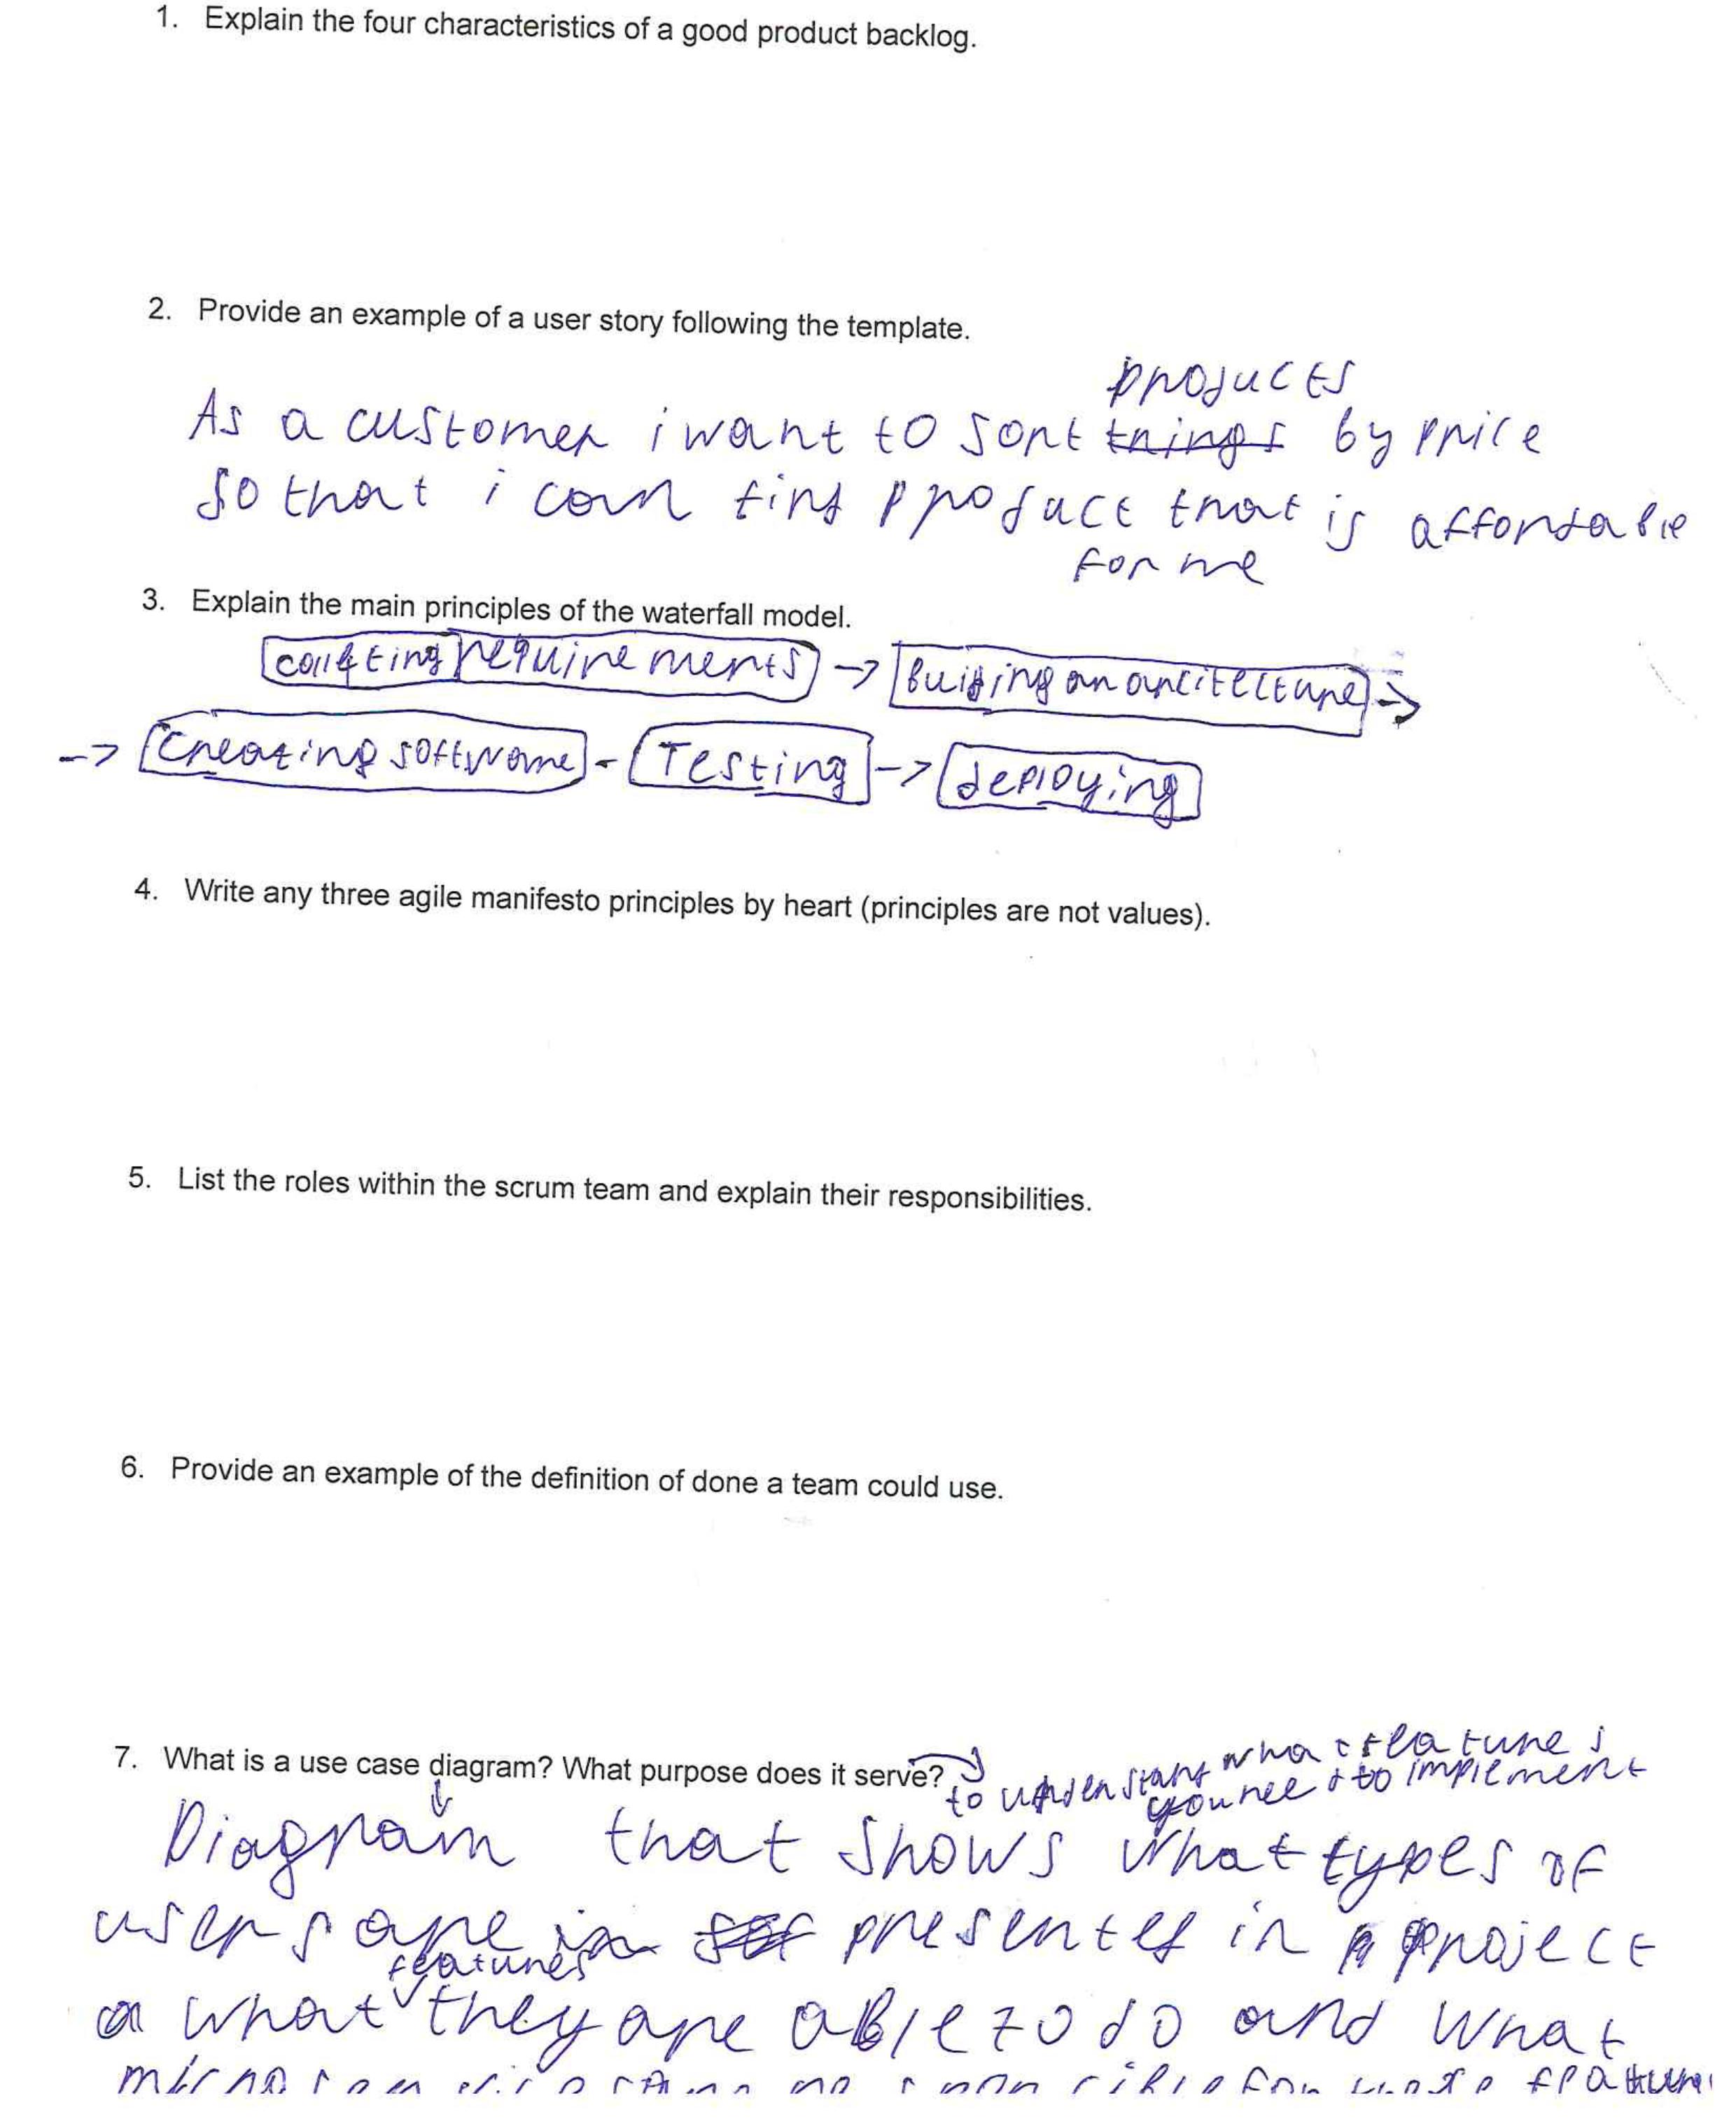 1. Explain the four characteristics of a good product backlog.
2. Provide an example of a user story following the template.
products
As a customer i want to sort things by price
so that i can find product that is affordable
for me
3. Explain the main principles of the waterfall model.
collecting requirements -> Building an arcitecture ->
-> Creating software - Testing -> deploying
4. Write any three agile manifesto principles by heart (principles are not values).
5. List the roles within the scrum team and explain their responsibilities.
6. Provide an example of the definition of done a team could use.
7. What is a use case diagram? What purpose does it serve?
to understand what features
you need to implement
Diagram that shows what types of
users are in presented in project
features
a what they are able to do and what
microservices are responsible for those feature